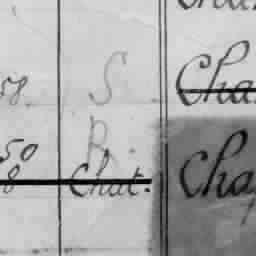 58. S. Cha
50 R.
8 Chat. Cha